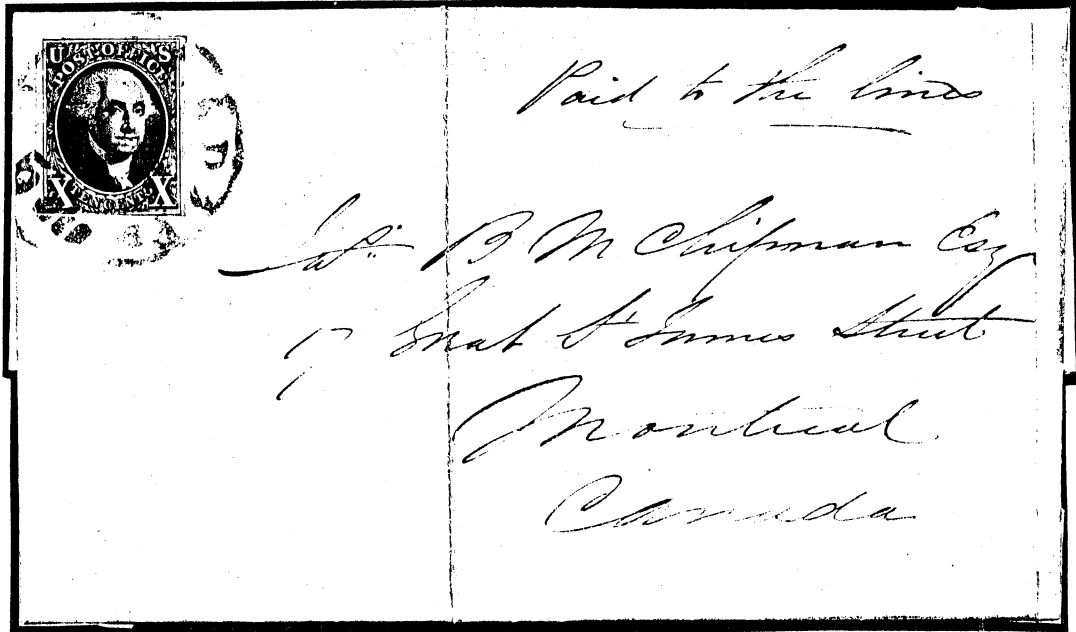 U S
POST OFFICE
X TEN CENTS X
PAID
Paid to the lines
B M Chipman Esq
Great St James Street
Montreal
Canada